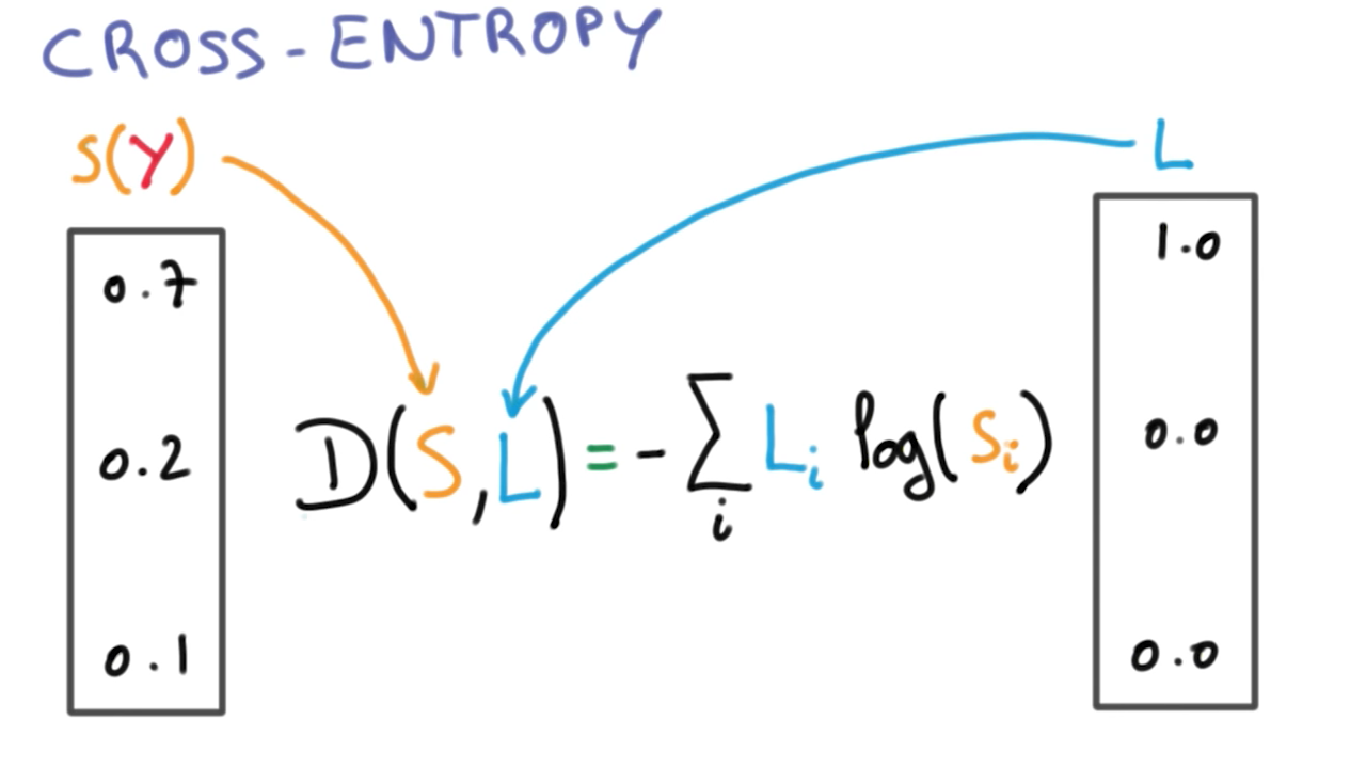 CROSS-ENTROPY
S(Y)
L
0.7
0.2
0.1
D(S,L) = - ∑ Lᵢ log(Sᵢ)
i
1.0
0.0
0.0